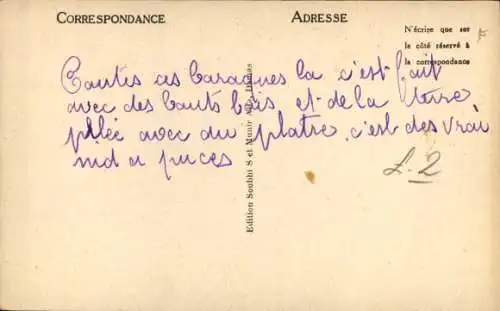 CORRESPONDANCE
ADRESSE
N'écrire que sur
le côté réservé à
la correspondance
Toutes ces baraques la c'est fait
avec des bouts bois et de la terre
pilée avec du platre c'est des vrai
nid a puces
£ - 2
Edition Soubhi S et Munir Aita Damas